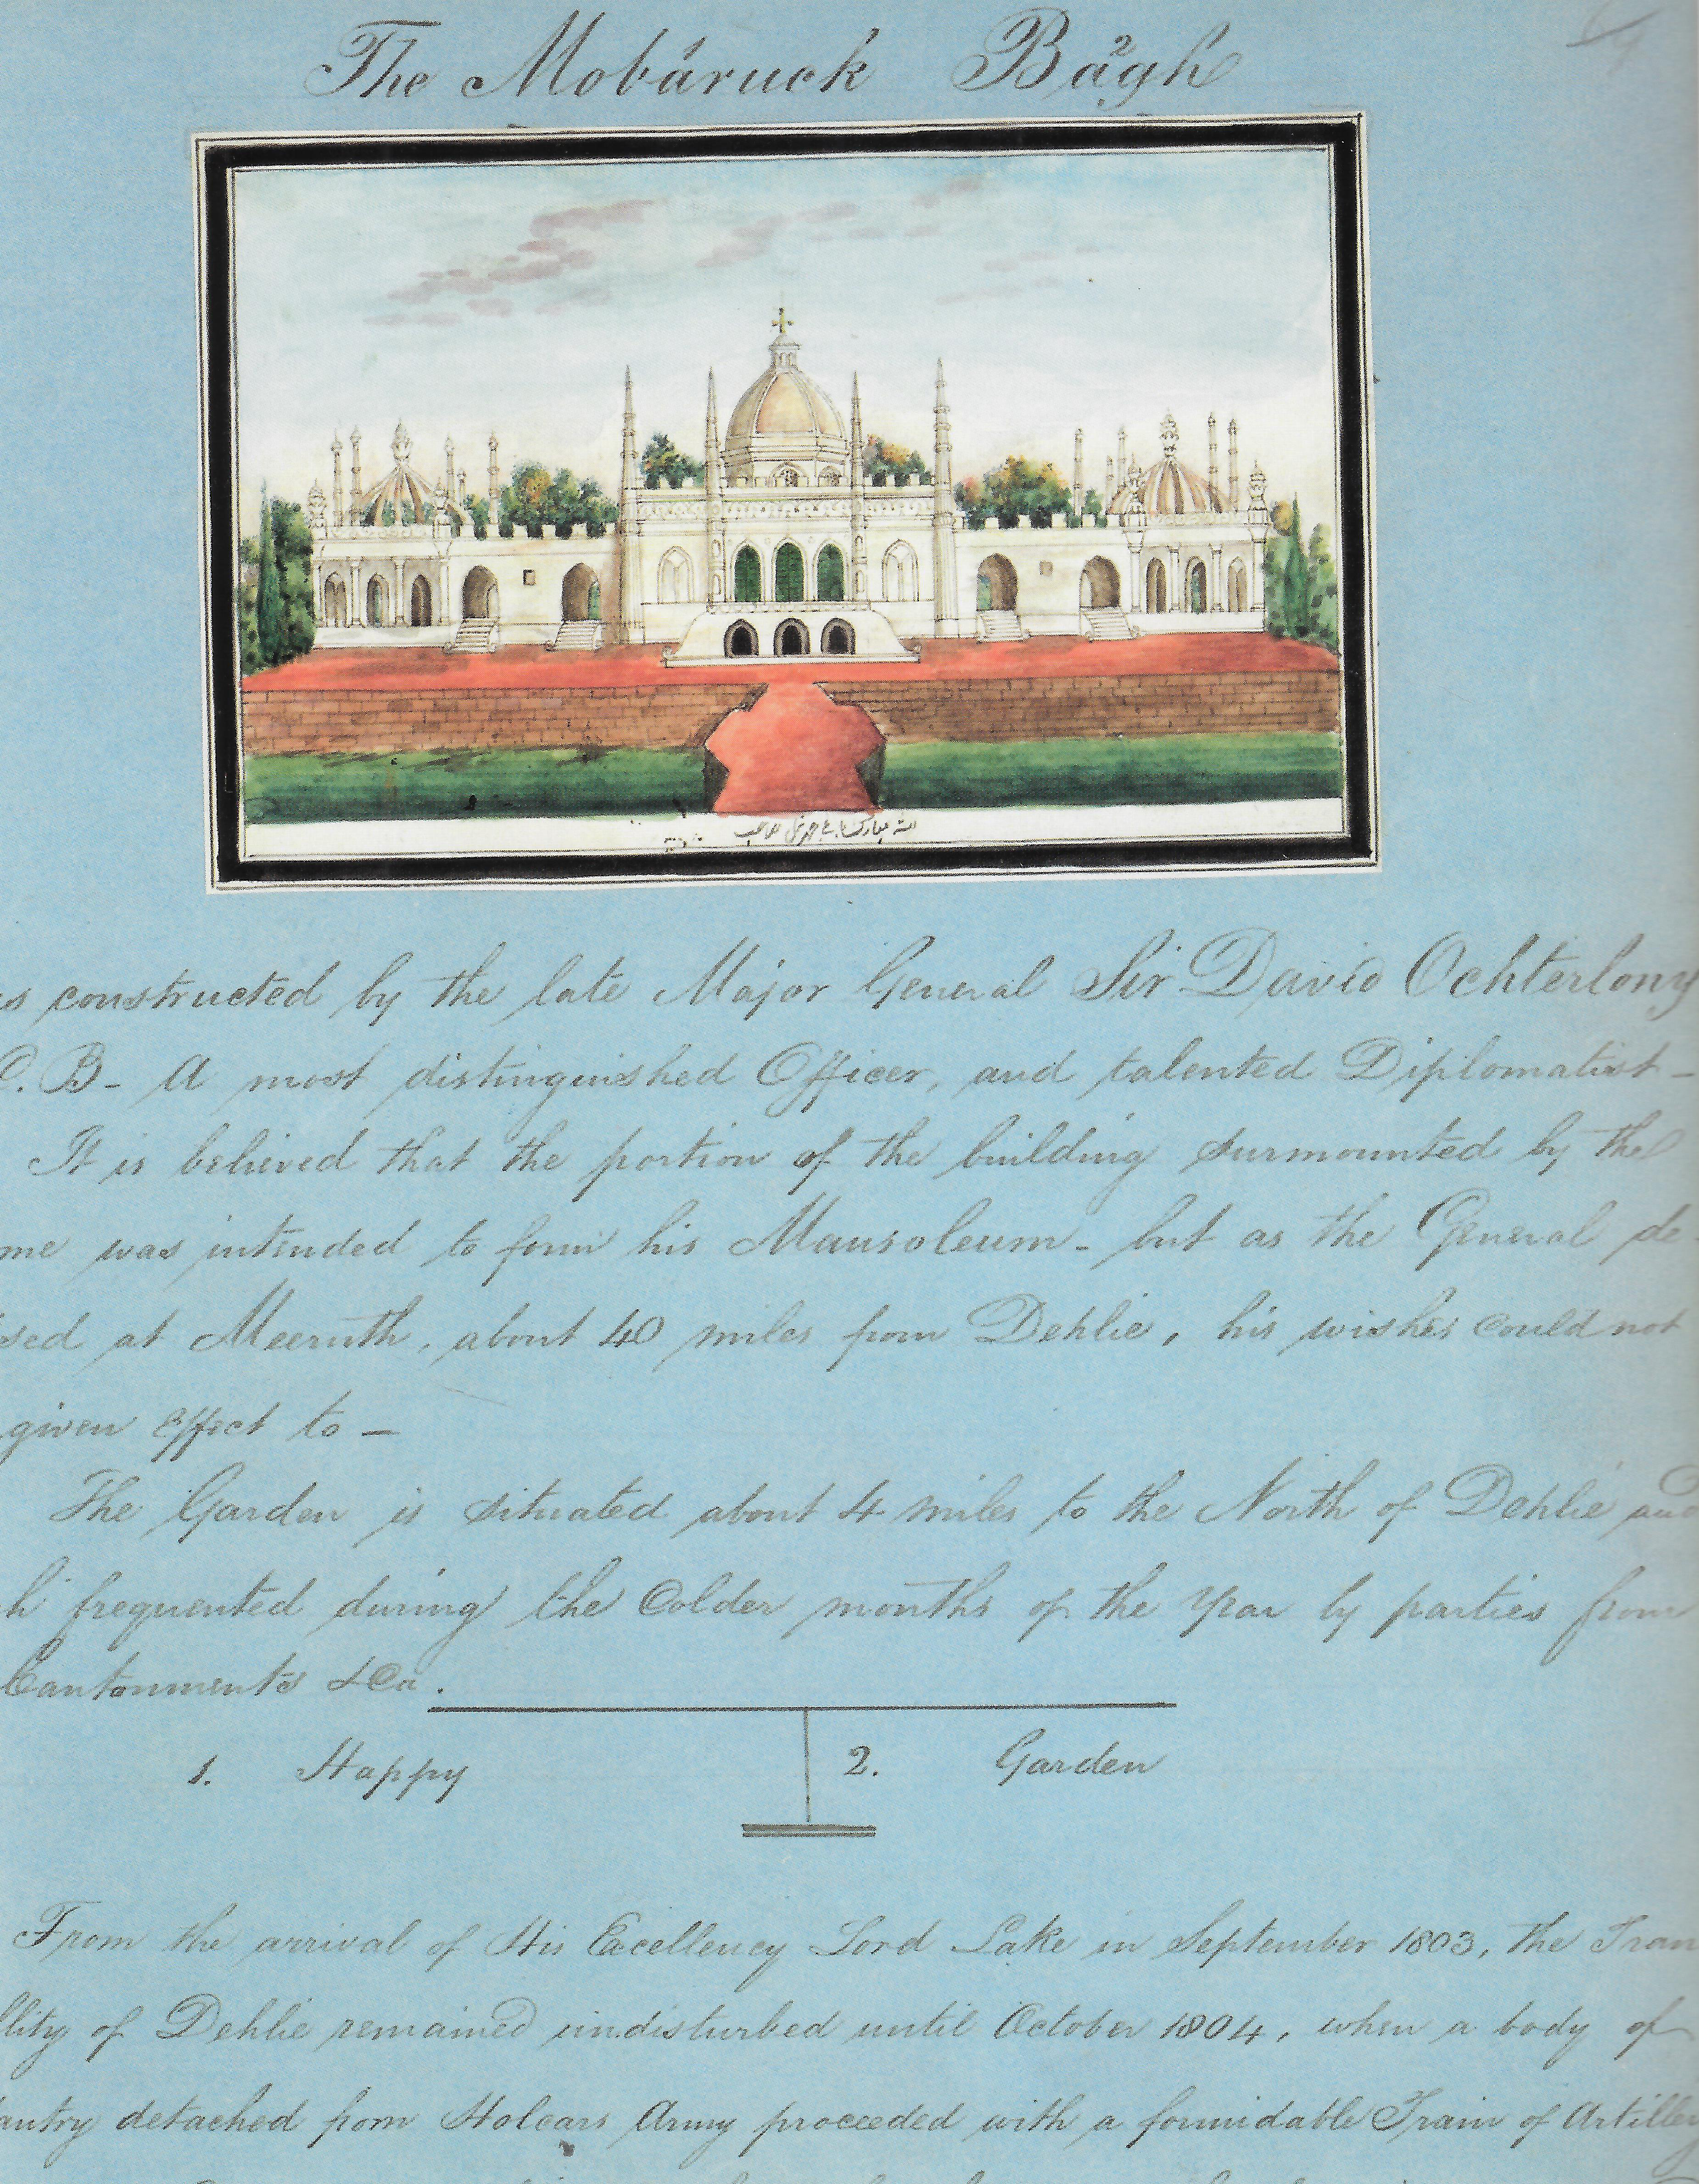 The Mobáruck Bágh
2
is constructed by the late Major General Sir David Ochterlony
C.B- A most distinguished Officer, and talented Diplomatist-
It is believed that the portion of the building surmounted by the
me was intended to form his Mausoleum- but as the General de-
sed at Meeruth, about 40 miles from Dehlie, his wishes could not
given effect to-
The Garden is situated about 4 miles to the North of Dehlie and
h frequented during the Colder months of the Year by parties from
Cantonments &Ca.
1. Happy 2. Garden
From the arrival of His Excellency Lord Lake in September 1803, the Tran
llity of Dehlie remained undisturbed until October 1804, when a body of
antry detached from Holcars Army proceeded with a formidable Train of Artillery